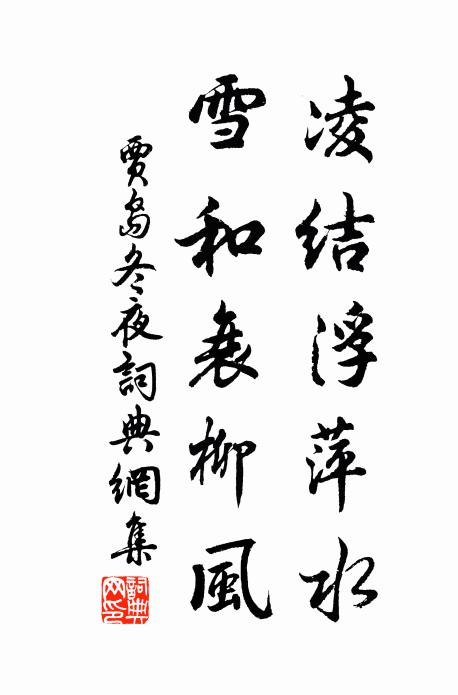 凌结浮萍水
雪和衰柳風
賈島冬夜詞典網集
詞典
网印